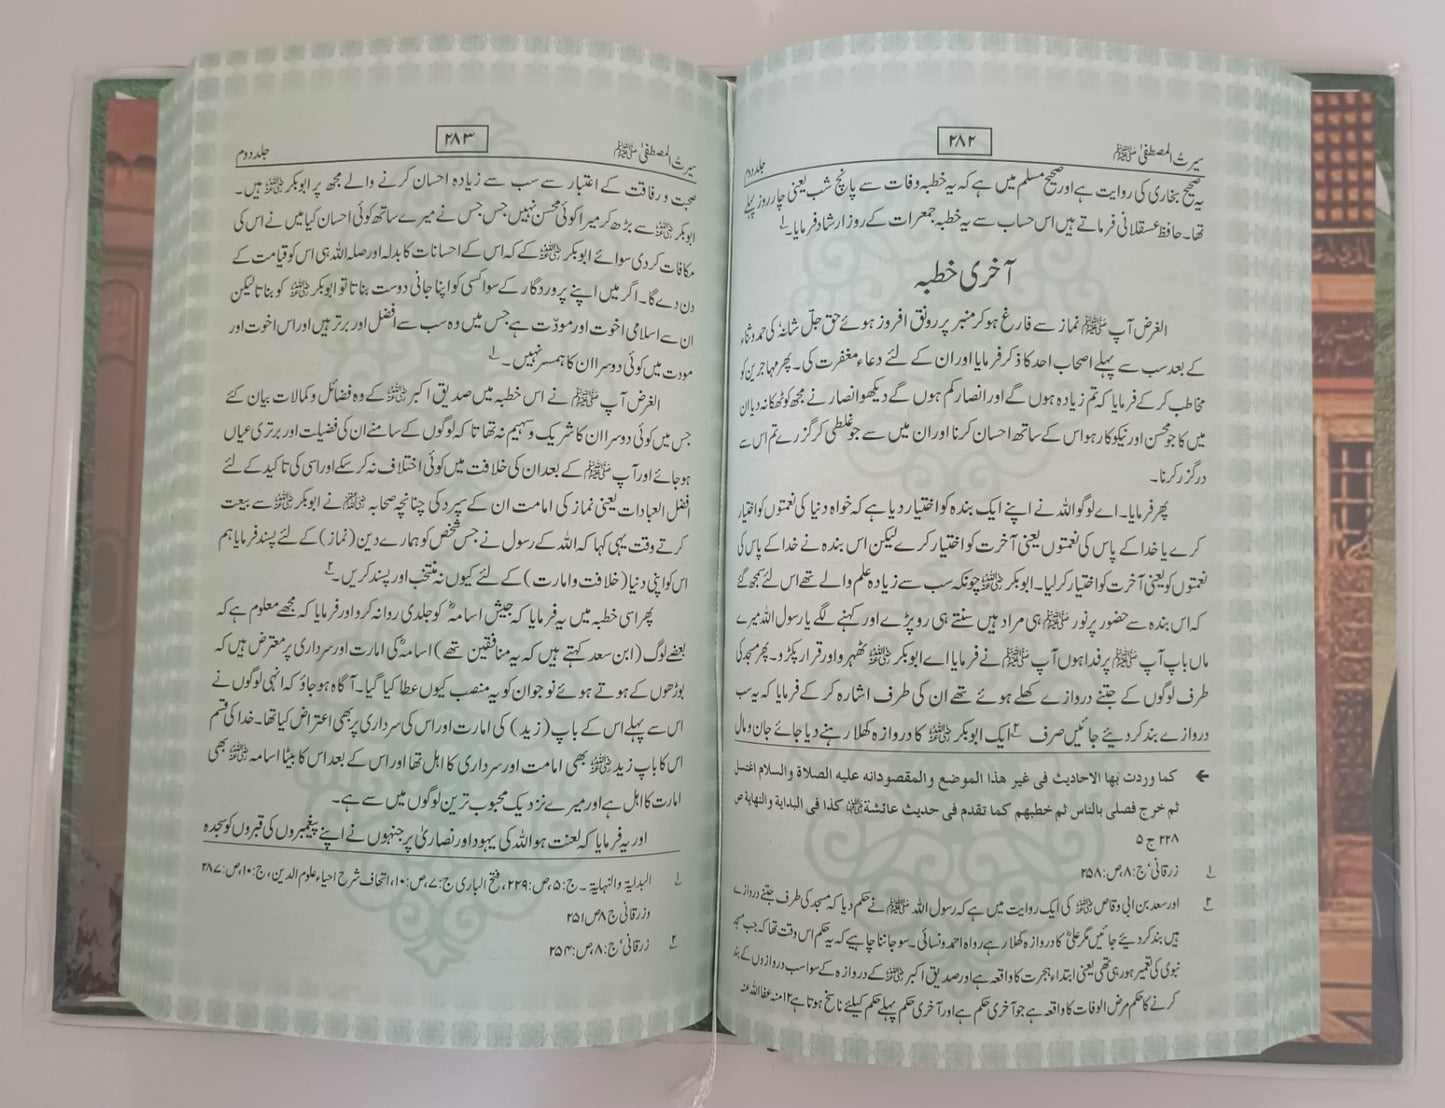 سیرتُ المصطفیٰ ﷺ
۲۸۲
جلد دوم
یہ صحیح بخاری کی روایت ہے اور صحیح مسلم میں ہے کہ یہ خطبہ وفات سے پانچ شب یعنی چار روز پہلے
تھا۔ حافظ عسقلانی فرماتے ہیں اس حساب سے یہ خطبہ جمعرات کے روز ارشاد فرمایا۔۱
آخری خطبہ
الغرض آپ ﷺ نماز سے فارغ ہو کر منبر پر رونق افروز ہوئے حق جلّ شانہٗ کی حمد و ثناء
کے بعد سب سے پہلے اصحاب احد کا ذکر فرمایا اور ان کے لئے دعاء مغفرت کی۔ پھر مہاجرین کو
مخاطب کر کے فرمایا کہ تم زیادہ ہوں گے اور انصار کم ہوں گے دیکھو انصار نے مجھ کو ٹھکانہ دیا ان
میں کا جو محسن اور نیکو کار ہو اس کے ساتھ احسان کرنا اور ان میں سے جو غلطی کر گزرے تم اس سے
درگزر کرنا۔
پھر فرمایا۔ اے لوگو اللہ نے اپنے ایک بندہ کو اختیار دیا ہے کہ خواہ دنیا کی نعمتوں کو اختیار
کرے یا خدا کے پاس کی نعمتوں یعنی آخرت کو اختیار کرے لیکن اس بندہ نے خدا کے پاس کی
نعمتوں کو یعنی آخرت کو اختیار کر لیا۔ ابوبکر رضی اللہ عنہ چونکہ سب سے زیادہ علم والے تھے اس لئے سمجھ گئے
کہ اس بندہ سے حضور پر نور ﷺ ہی مراد ہیں سنتے ہی رو پڑے اور کہنے لگے یا رسول اللہ میرے
ماں باپ آپ ﷺ پر فدا ہوں آپ ﷺ نے فرمایا اے ابوبکر رضی اللہ عنہ ٹھہرو اور قرار پکڑو۔ پھر مسجد کی
طرف لوگوں کے جتنے دروازے کھلے ہوئے تھے ان کی طرف اشارہ کر کے فرمایا کہ یہ سب
دروازے بند کر دیئے جائیں صرف ۲ ایک ابوبکر رضی اللہ عنہ کا دروازہ کھلا رہنے دیا جائے جان و مال
← کما وردت بها الاحادیث فی غیر هذا الموضع والمقصود انه علیه الصلاة والسلام اغتسل
ثم خرج فصلی بالناس ثم خطبهم کما تقدم فی حدیث عائشة رضی اللہ عنہا کذا فی البدایة والنهایة ص
۲۲۸ ج ۵
۱ زرقانی، ج:۸، ص:۲۵۸
۲ اور سعد بن ابی وقاص رضی اللہ عنہ کی ایک روایت میں ہے کہ رسول اللہ ﷺ نے حکم دیا کہ مسجد کی طرف جتنے دروازے
ہیں بند کر دیئے جائیں مگر علیؓ کا دروازہ کھلا رہے رواہ احمد و نسائی۔ سو جاننا چاہیے کہ یہ حکم اس وقت تھا کہ جب مسجد
نبوی کی تعمیر ہو رہی تھی یعنی ابتداء ہجرت کا واقعہ ہے اور صدیق اکبر رضی اللہ عنہ کے دروازہ کے سوا سب دروازوں کے بند
کرنے کا حکم مرض الوفات کا واقعہ ہے جو آخری حکم ہے اور آخری حکم پہلے حکم کیلئے ناسخ ہوتا ہے ۱۲ منہ عفا اللہ عنہ
سیرتُ المصطفیٰ ﷺ
۲۸۳
جلد دوم
صحبت و رفاقت کے اعتبار سے سب سے زیادہ احسان کرنے والے مجھ پر ابوبکر رضی اللہ عنہ ہیں۔
ابوبکر رضی اللہ عنہ سے بڑھ کر میرا کوئی محسن نہیں جس جس نے میرے ساتھ کوئی احسان کیا میں نے اس کی
مکافات کر دی سوائے ابوبکر رضی اللہ عنہ کے کہ اس کے احسانات کا بدلہ اور صلہ اللہ ہی اس کو قیامت کے
دن دے گا۔ اگر میں اپنے پروردگار کے سوا کسی کو اپنا جانی دوست بناتا تو ابوبکر رضی اللہ عنہ کو بناتا لیکن
ان سے اسلامی اخوت اور مودّت ہے جس میں وہ سب سے افضل اور برتر ہیں اور اس اخوت اور
مودت میں کوئی دوسرا ان کا ہمسر نہیں۔۱
الغرض آپ ﷺ نے اس خطبہ میں صدیق اکبر رضی اللہ عنہ کے وہ فضائل و کمالات بیان کئے
جس میں کوئی دوسرا ان کا شریک و سہیم نہ تھا تا کہ لوگوں کے سامنے ان کی فضیلت اور برتری عیاں
ہو جائے اور آپ ﷺ کے بعد ان کی خلافت میں کوئی اختلاف نہ کر سکے اور اسی کی تاکید کے لئے
افضل العبادات یعنی نماز کی امامت ان کے سپرد کی چنانچہ صحابہ رضی اللہ عنہم نے ابوبکر رضی اللہ عنہ سے بیعت
کرتے وقت یہی کہا کہ اللہ کے رسول نے جس شخص کو ہمارے دین (نماز) کے لئے پسند فرمایا ہم
اس کو اپنی دنیا (خلافت و امارت) کے لئے کیوں نہ منتخب اور پسند کریں۔۲
پھر اسی خطبہ میں یہ فرمایا کہ جیش اسامہؓ کو جلدی روانہ کرو اور فرمایا کہ مجھے معلوم ہے کہ
بعضے لوگ (ابن سعد کہتے ہیں کہ یہ منافقین تھے) اسامہؓ کی امارت اور سرداری پر معترض ہیں کہ
بوڑھوں کے ہوتے ہوئے نوجوان کو یہ منصب کیوں عطا کیا گیا۔ آگاہ ہو جاؤ کہ انہی لوگوں نے
اس سے پہلے اس کے باپ (زید) کی امارت اور اس کی سرداری پر بھی اعتراض کیا تھا۔ خدا کی قسم
اس کا باپ زید رضی اللہ عنہ بھی امامت اور سرداری کا اہل تھا اور اس کے بعد اس کا بیٹا اسامہ رضی اللہ عنہ بھی
امارت کا اہل ہے اور میرے نزدیک محبوب ترین لوگوں میں سے ہے۔
اور یہ فرمایا کہ لعنت ہو اللہ کی یہود اور نصاریٰ پر جنہوں نے اپنے پیغمبروں کی قبروں کو سجدہ
۱ البدایة والنہایة۔ ج:۵، ص:۲۲۹، فتح الباری ج:۷، ص:۱۰، اتحاف شرح احیاء علوم الدین، ج:۱۰، ص:۲۸۷
وزرقانی ج ۸ ص ۲۵۱
۲ زرقانی، ج:۸، ص:۲۵۴